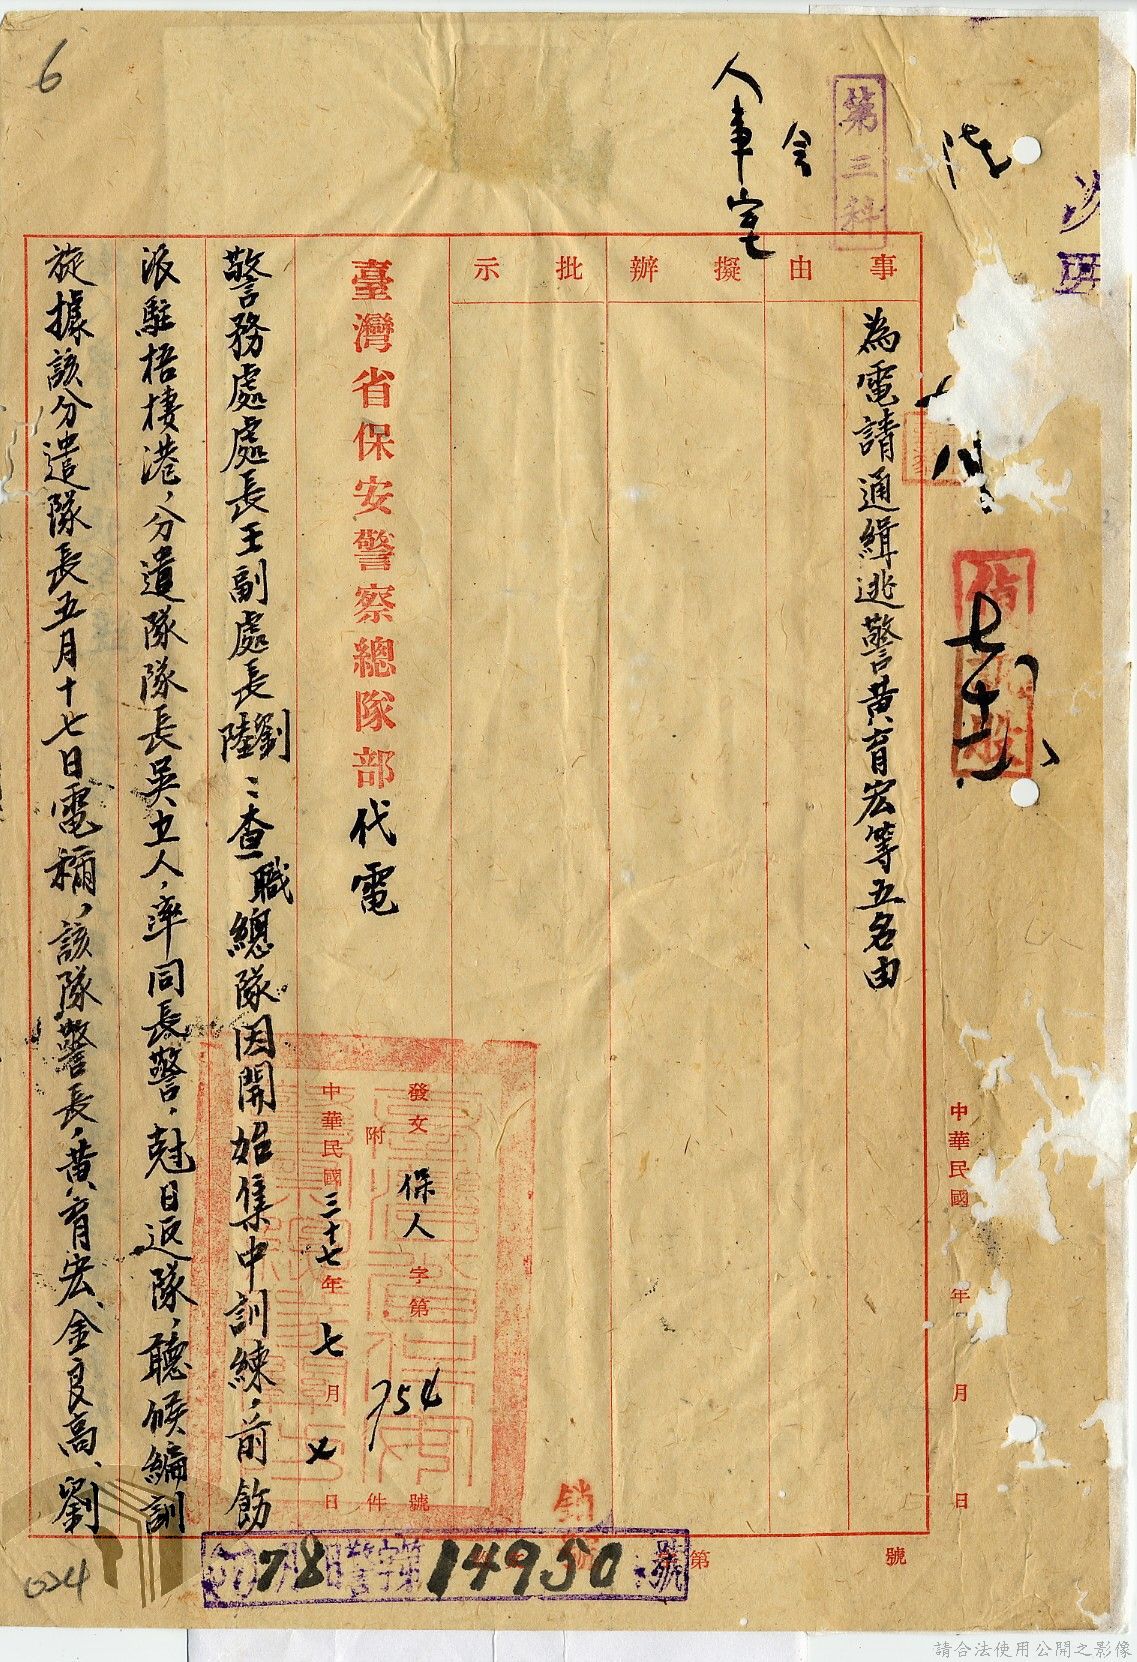 6
第三科
會
人事室
事由
擬辦
批示
為電請通緝逃警黃育宏等五名由
中華民國 年 月 日
臺灣省保安警察總隊部代電
發文 保人 字第 754 號
附 件
中華民國三十七年七月 日
警務處處長王副處長劉陸：查職總隊因開始集中訓練，前飭
派駐梧棲港，分遣隊隊長吳立人，率同長警，尅日返隊，聽候編訓
旋據該分遣隊長五月十七日電稱，該隊警長，黃育宏、金良高、劉
銷號
14950號
第 號
024
請合法使用公開之影像